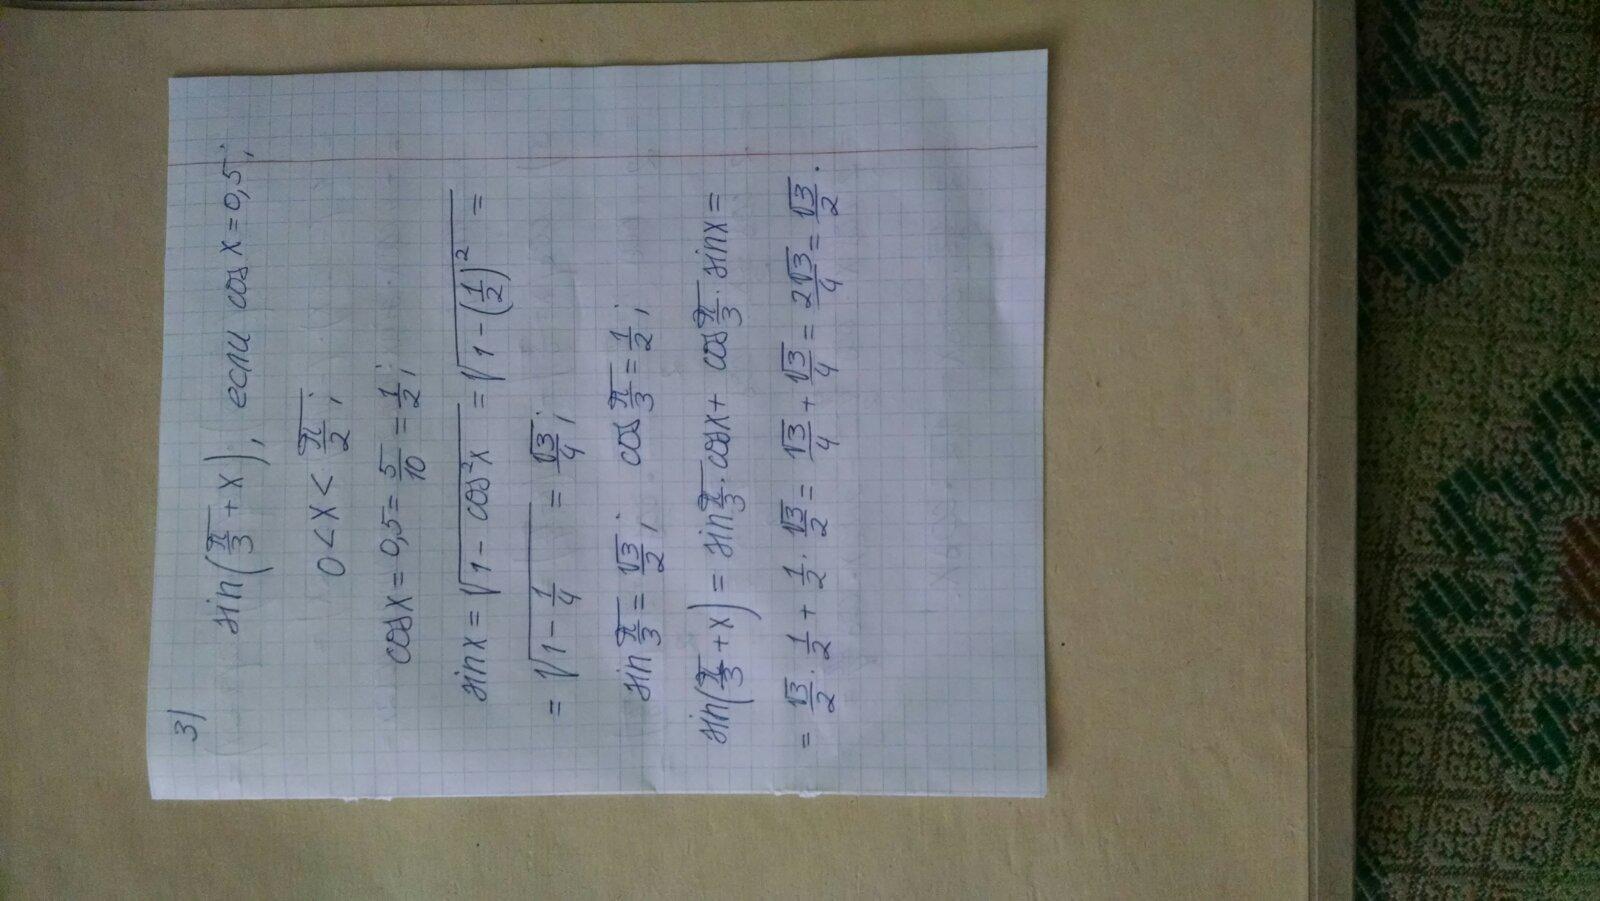 3)
sin(π/3 + x), если cos x = 0,5;
0 < x < π/2;
cos x = 0,5 = 5/10 = 1/2;
sin x = √(1 - cos²x) = √(1 - (1/2)²) =
= √(1 - 1/4) = √3/4;
sin π/3 = √3/2; cos π/3 = 1/2;
sin(π/3 + x) = sin π/3 · cos x + cos π/3 · sin x =
= √3/2 · 1/2 + 1/2 · √3/2 = √3/4 + √3/4 = 2√3/4 = √3/2.